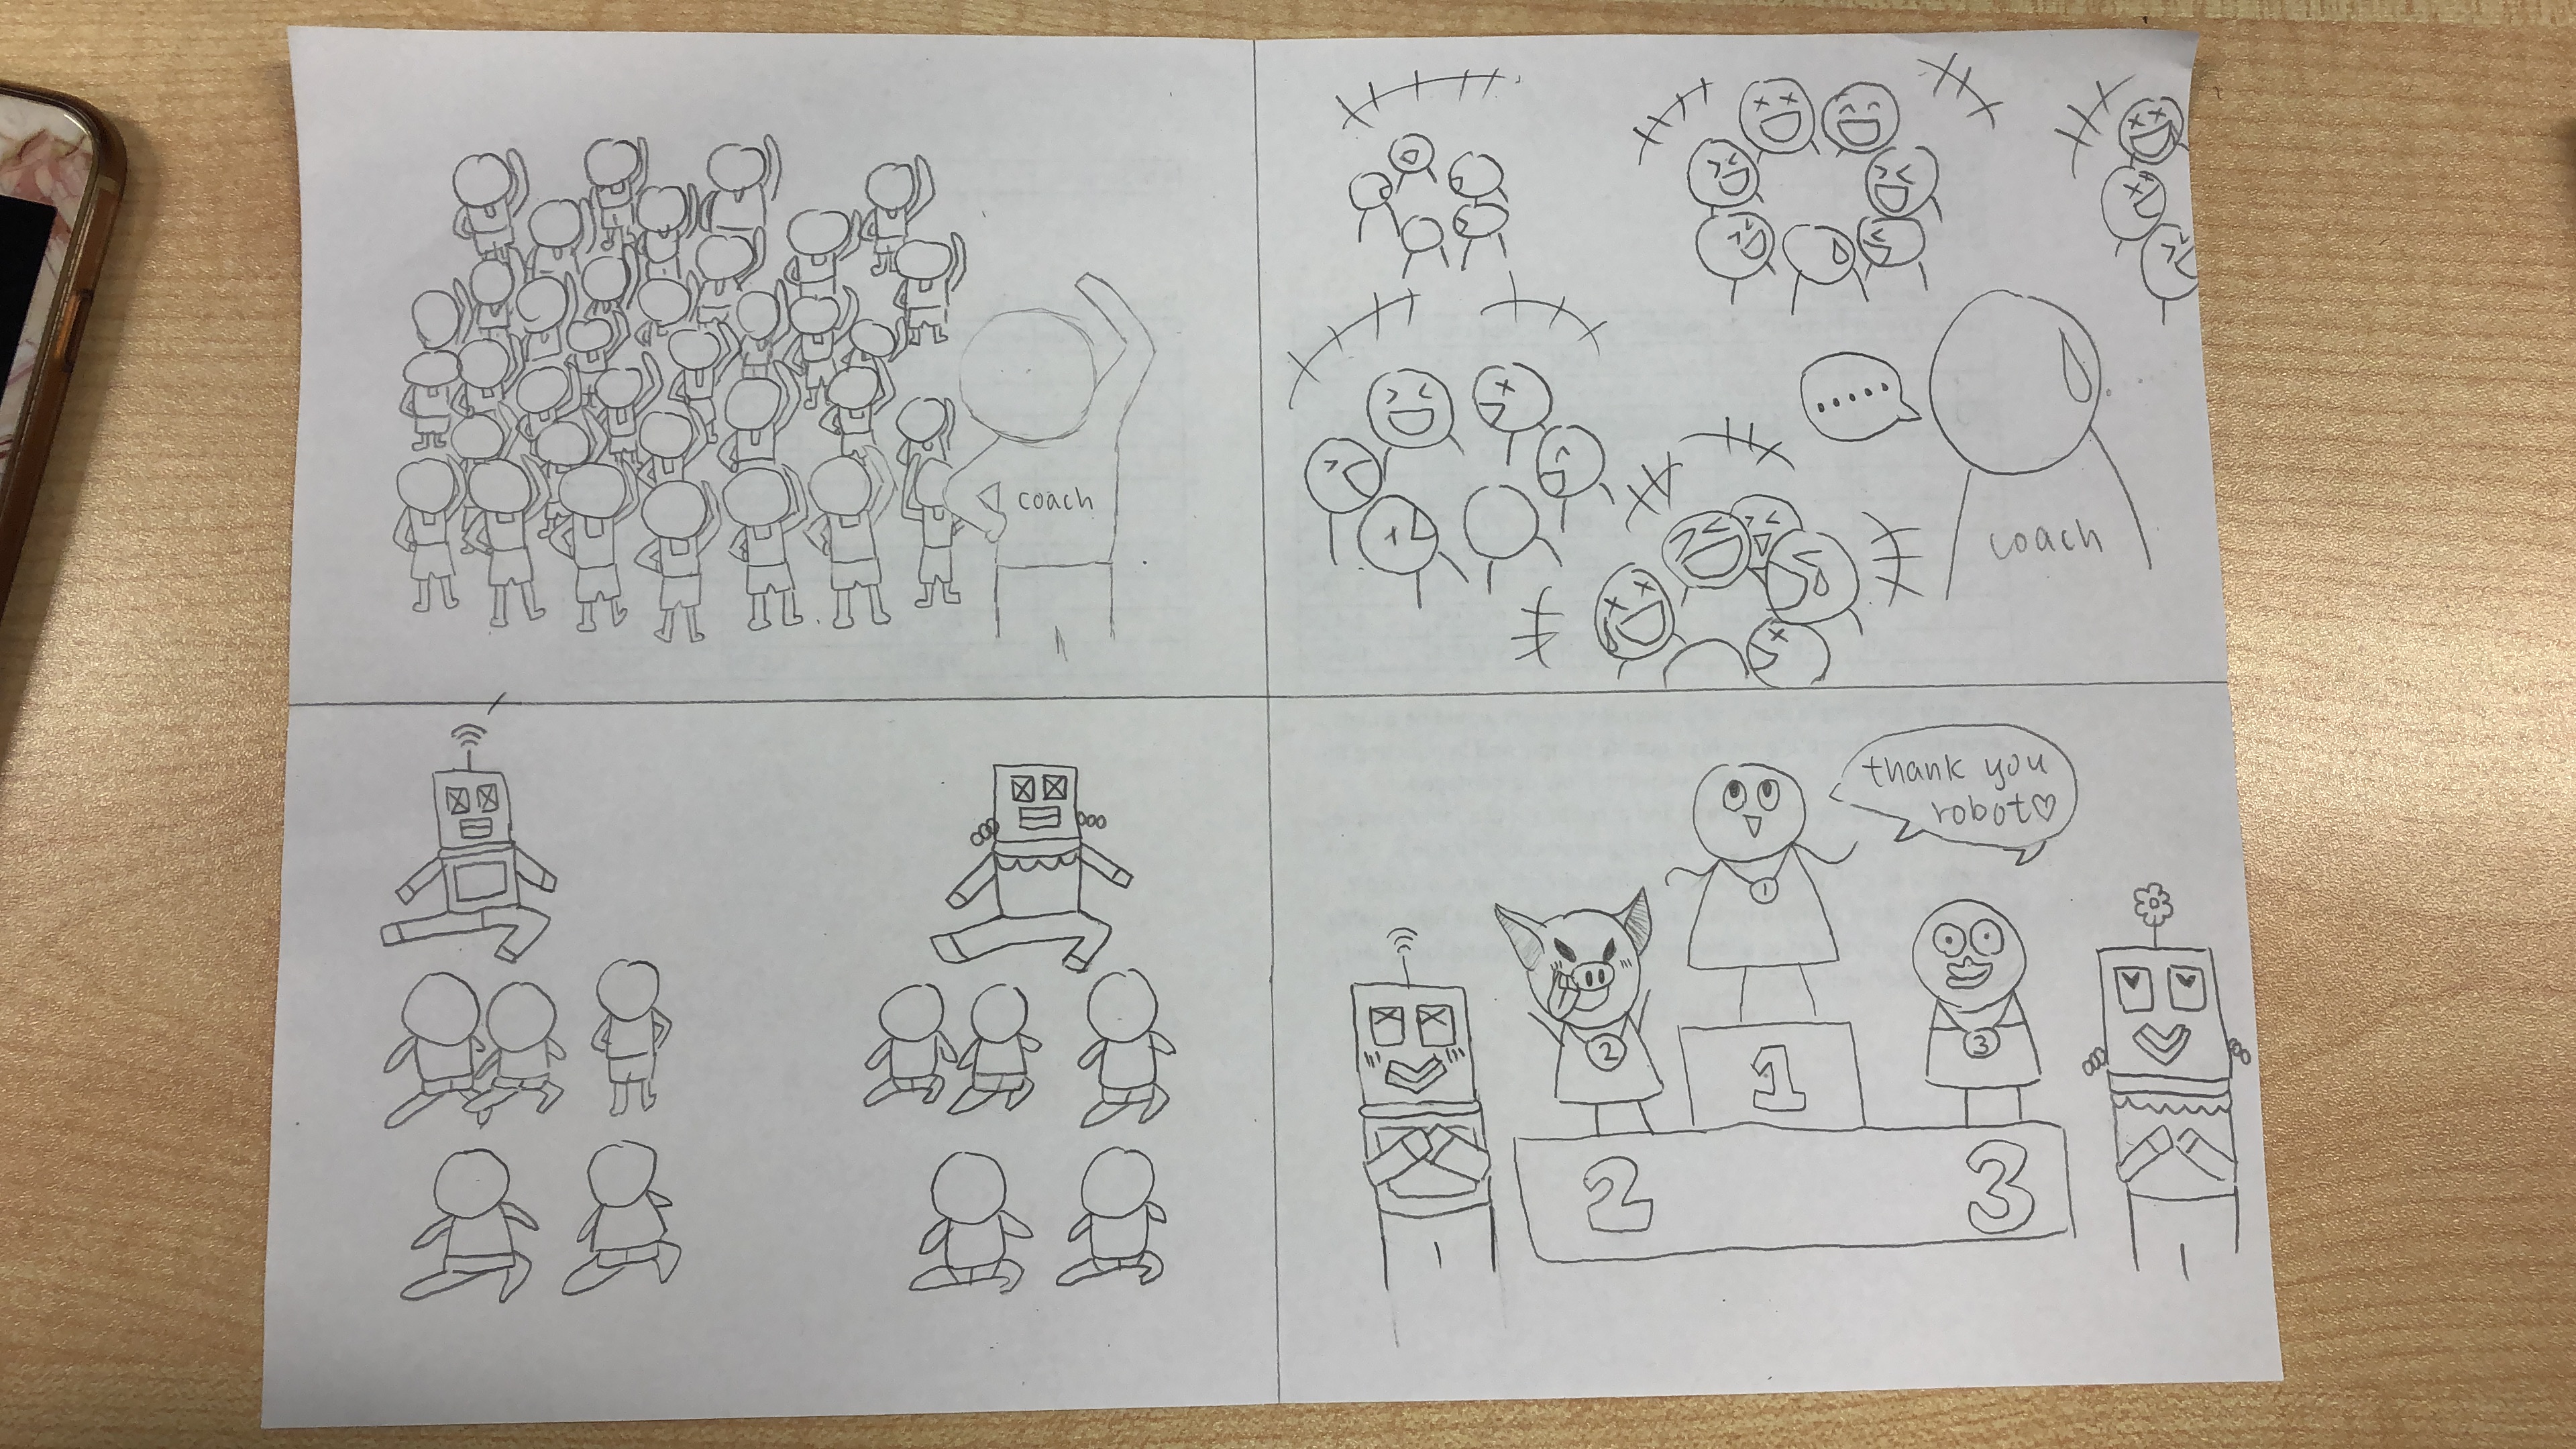 coach
.....
coach
thank you
robot♡
1
2
3
1
2
3